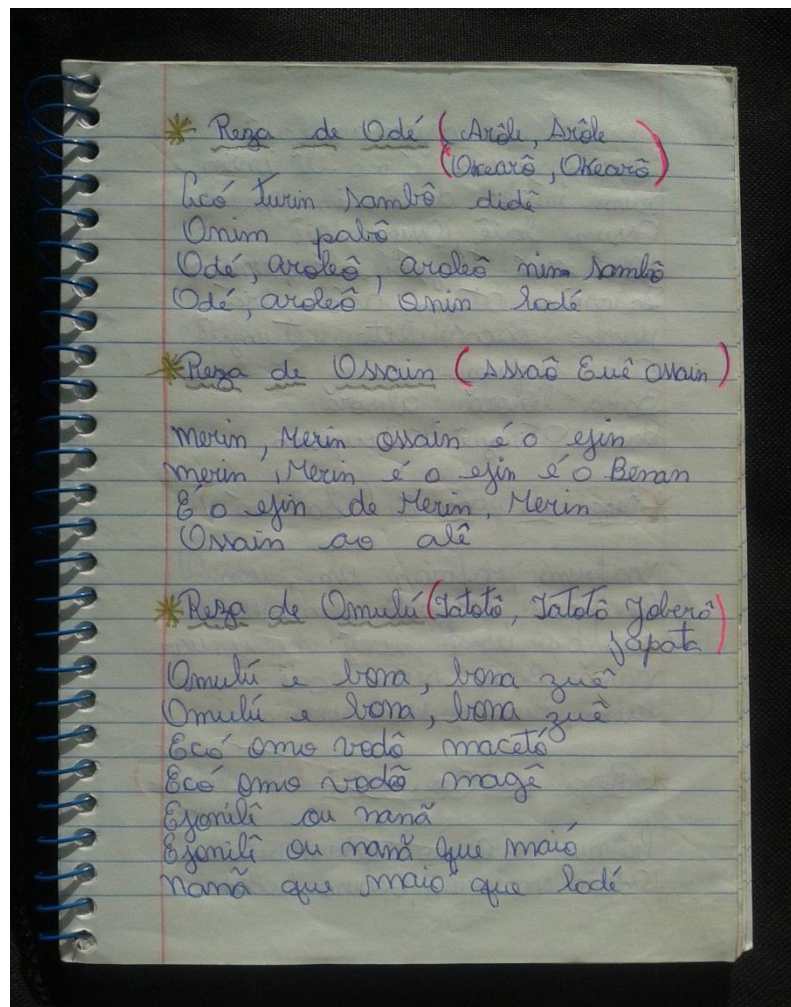 * Reza de Odé (Arôle, Arôle
(Okearô, Okearô)
Ecó turin sambô didê
Onim pabô
Odé, aroleô, aroleô nim sambô
Odé, aroleô onin lodé
* Reza de Ossain (Assaô Euê ossain)
merin, Merin ossain é o ejin
merin, Merin é o ejin é o Benan
É o ejin de Merin, Merin
Ossain ao alê
* Reza de Omulú (Jatotô, Jatotô Joberô
japata)
Omulú e bona, bona zuê
Omulú e bona, bona zuê
Ecó omo vodô macetó
Ecó omo vodô magê
Ejonilê ou nanã
Ejonilê ou nanã que maió
nanã que maió que lodé